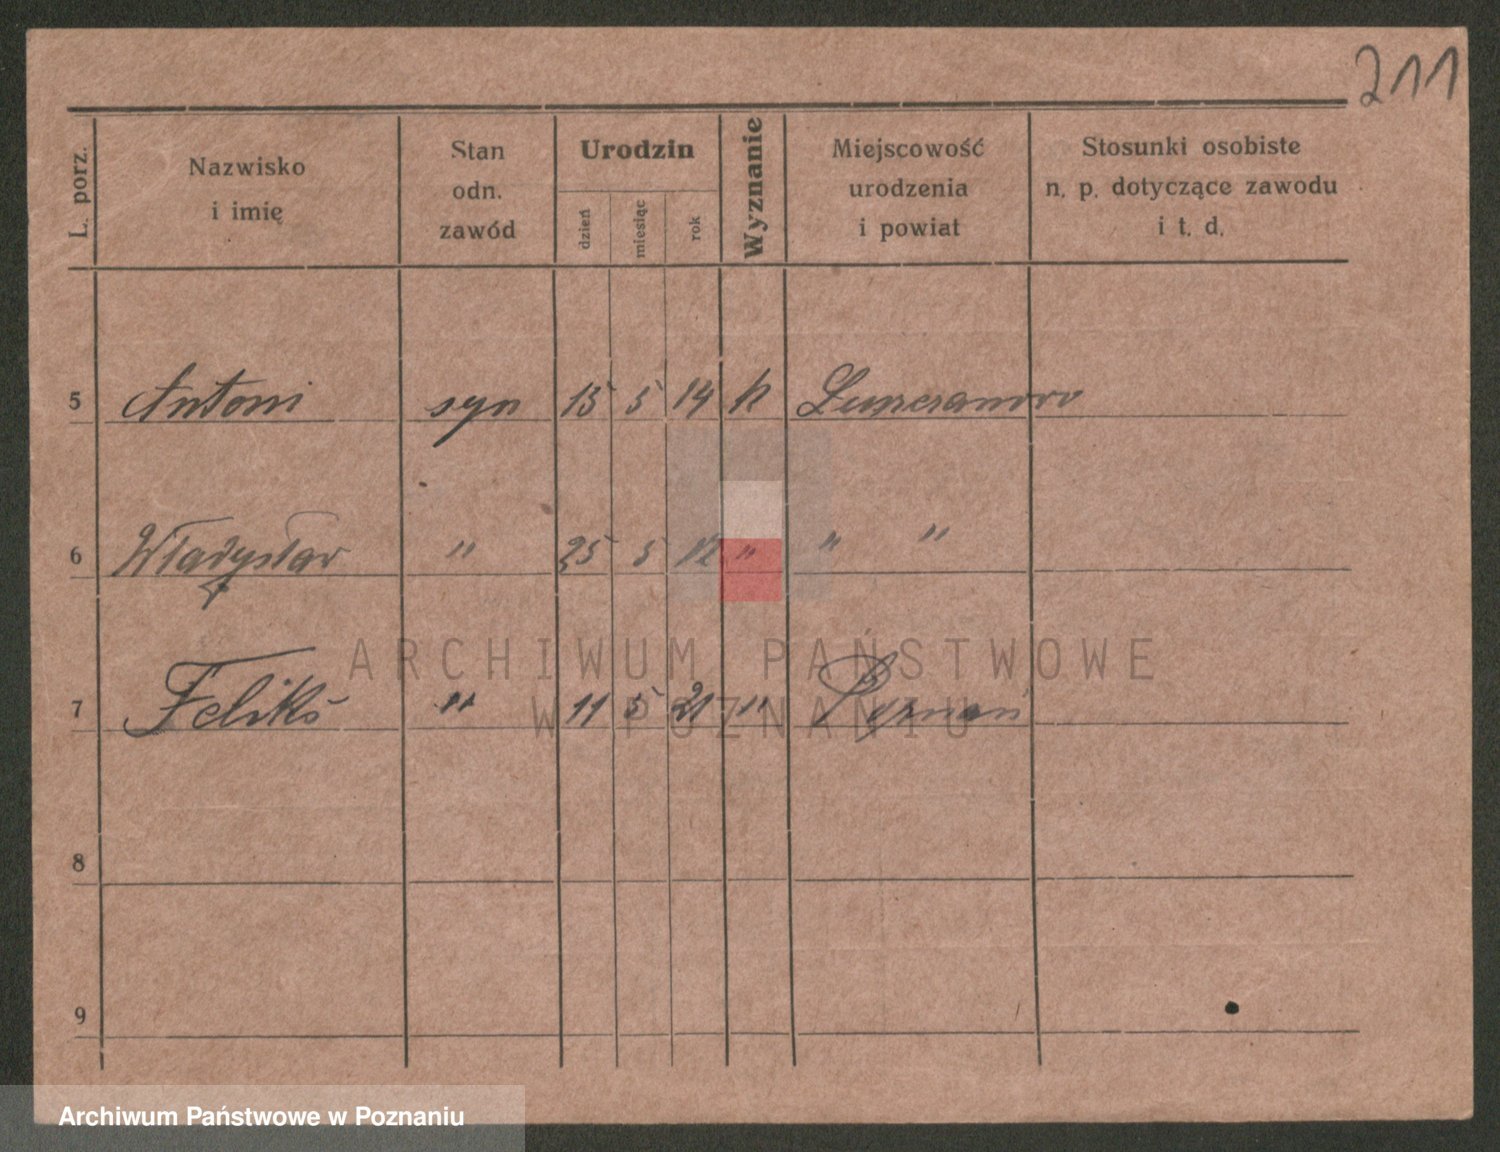 211
L. porz.
Nazwisko
i imię
Stan
odn.
zawód
Urodzin
dzień
miesiąc
rok
Wyznanie
Miejscowość
urodzenia
i powiat
Stosunki osobiste
n. p. dotyczące zawodu
i t. d.
5 Antoni syn 15 5 14 k
6 Władysław " 25 5 12 " " "
7 Feliks " 11 5 21 " Poznań
8
9
ARCHIWUM PAŃSTWOWE
W POZNANIU
Archiwum Państwowe w Poznaniu